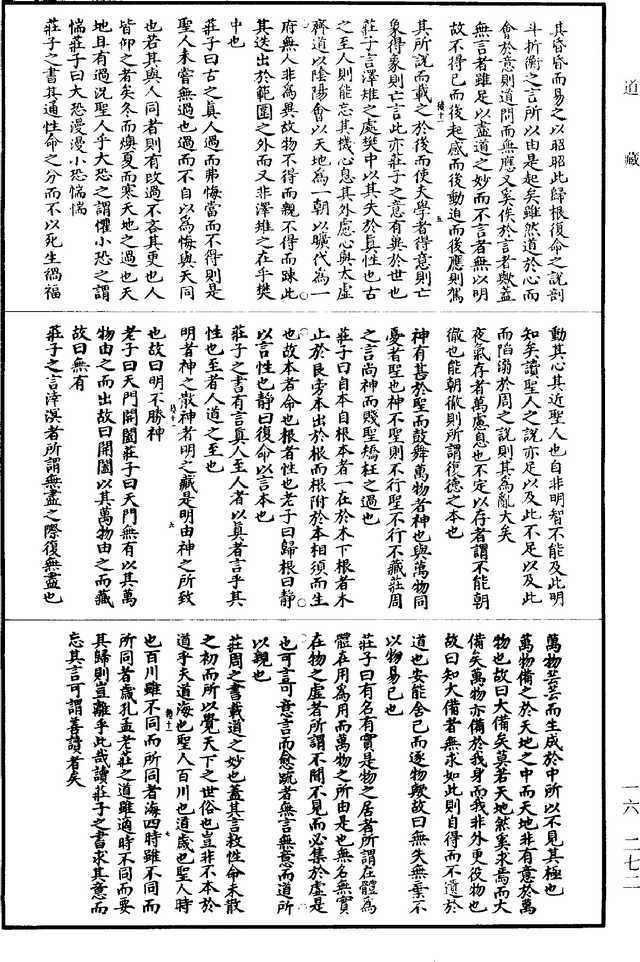 道藏
其昏昏而易之以昭昭此歸根復命之說剖
斗折衡之言所以由是起矣雖然道於心而
會於意則道問而無應又奚俟於言者歟蓋
無言者雖足以盡道之妙而不言者無以明
故不得已而後起感而後動迫而後應則駕
其所說而載之於後而使夫學者得意則亡
象得象則亡言此亦莊子之意有異於世也
莊子言澤雉之處樊中以其失於真性也古
之至人則能忘其機心息其外慮心與太虛
齊道以陰陽會以天地為一朝以曠代為一
府無人非為異故物不得而親不得而踈此
其迭出於範圍之外而又非澤雉之在乎樊
中也
莊子曰古之真人過而弗悔當而不得則是
聖人未嘗無過也過而不自以為悔與天同
也若其與人同者則有改過不吝其更也人
皆仰之者矣冬而燠夏而寒天地之過也天
地且有過況聖人乎大恐之謂懼小恐之謂
惴莊子曰大恐漫漫小恐惴惴
莊子之書其通性命之分而不以死生禍福
動其心其近聖人也自非明智不能及此明
知矣讀聖人之說亦足以及此不足以及此
而陷溺於周之說則其為亂大矣
夜氣存者萬慮息也不定以存者謂不能朝
徹也能朝徹則所謂復德之本也
神有甚於聖而鼓舞萬物者神也與萬物同
憂者聖也神不聖則不行聖不行不藏莊周
之言尚神而賤聖矯枉之過也
莊子曰自本自根本者一在於木下根者木
止於艮旁本出於根而根附於本相須而生
也故本者命也根者性也老子曰歸根曰靜
以言性也靜曰復命以言本也
莊子之書有言真人至人者以真者言乎其
性也至者人道之至也
明者神之散神者明之藏是明由神之所致
也故曰明不勝神
老子曰天門開闔莊子曰天門無有以其萬
物由之而出故曰開闔以其萬物由之而藏
故曰無有
莊子之言滓溟者所謂無盡之際復無盡也
萬物芸芸而生成於中所以不見其極也
萬物備之於天地之中而天地非有意於萬
物也故曰大備矣莫若天地然奚求焉而大
備矣萬物亦備於我身而我非外更役物也
故曰知大備者無求如此則自得而不遺於
道也安能舍己而逐物歟故曰無失無棄不
以物易己也
莊子曰有名有實是物之居者所謂在體為
體在用為用而萬物之所由是也無名無實
在物之虛者所謂不聞不見而必集於虛是
也可言可意言而愈疏者無言無意而道所
以親也
莊周之書載道之妙也蓋其言救性命未散
之初而所以覺天下之世俗也豈非不本於
道乎夫道海也聖人百川也道歲也聖人時
也百川雖不同而所同者海四時雖不同而
所同者歲孔孟老莊之道雖適時不同而要
其歸則豈離乎此哉讀莊子之書求其意而
忘其言可謂善讀者矣
一六 二七二